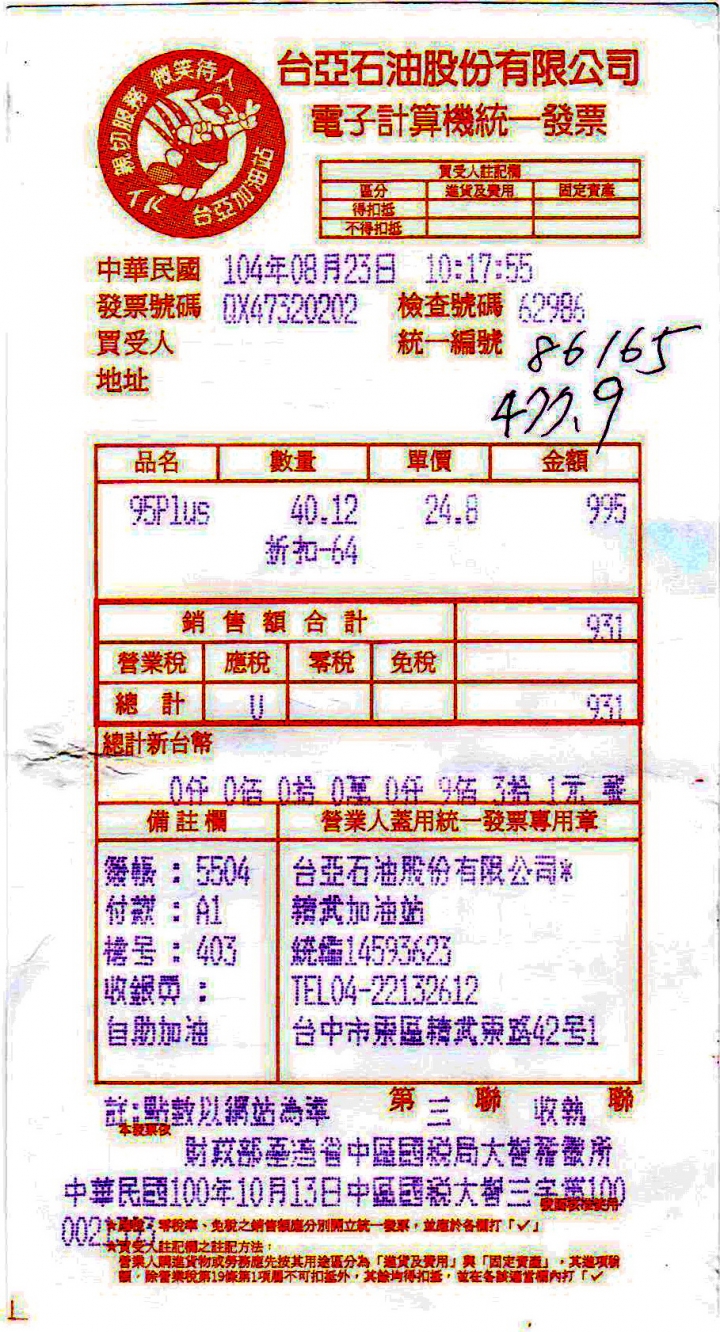 親切服務 微笑待人
台亞加油站
台亞石油股份有限公司
電子計算機統一發票
買受人註記欄
區分 進貨及費用 固定資產
得扣抵
不得扣抵
中華民國 104年08月23日 10:17:55
發票號碼 QX47320202 檢查號碼 62986
買受人 統一編號 86165
地址
477.9
品名 數量 單價 金額
95Plus 40.12 24.8 995
折扣-64
銷售額合計 931
營業稅 應稅 零稅 免稅
總計 U 931
總計新台幣
0仟 0佰 0拾 0萬 0仟 9佰 3拾 1元 整
備註欄 營業人蓋用統一發票專用章
簽帳:5504 台亞石油股份有限公司*
付款:A1 精武加油站
槍号:403 統編14593623
收銀員: TEL04-22132612
自助加油 台中市東區精武東路42号1
註:點數以網站為準 第三聯 收執聯
本發票依
財政部臺灣省中區國稅局大智稽徵所
中華民國100年10月13日中區國稅大智三字第100
零稅率、免稅之銷售額應分別開立統一發票,並應於各欄打「✓」
★買受人註記欄之註記方法:
營業人購進貨物或勞務應先按其用途區分為「進貨及費用」與「固定資產」,其進項稅
額,除營業稅第19條第1項屬不可扣抵外,其餘均得扣抵,並在各該適當欄內打「✓